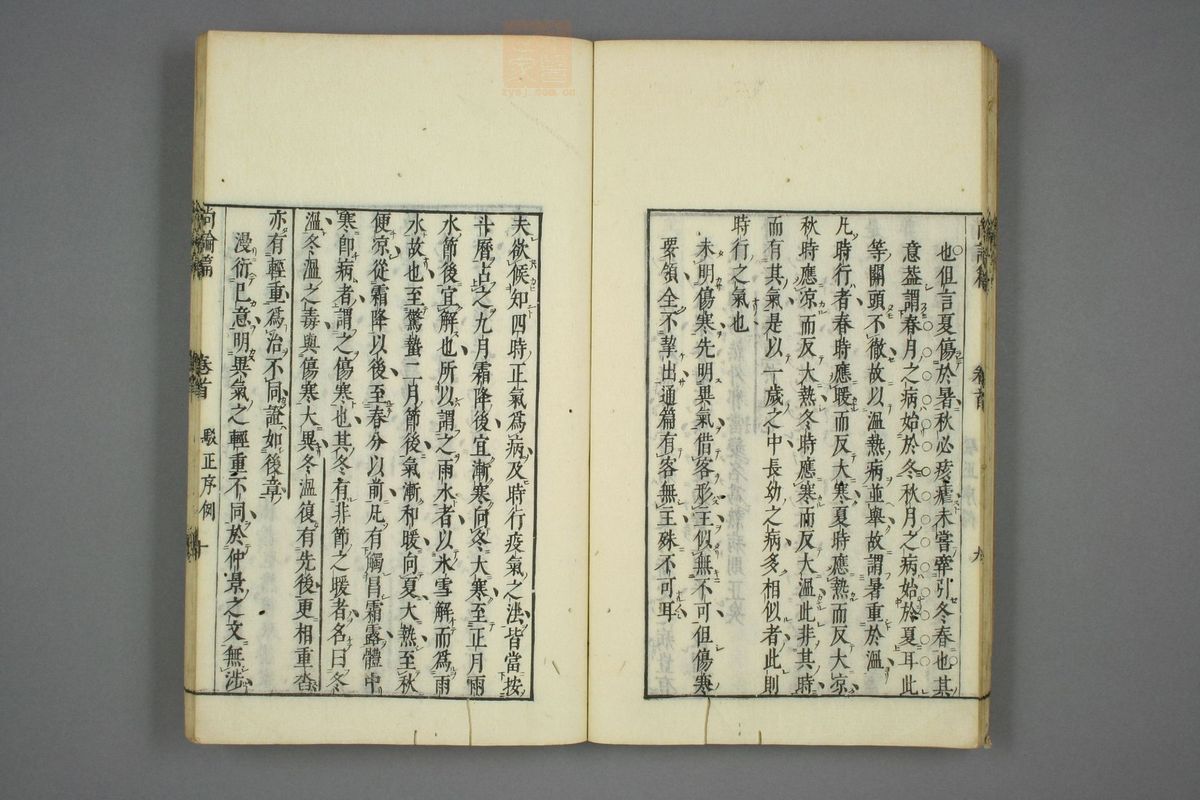 也但言夏傷於暑秋必痎瘧未嘗牽引冬春也其
意葢謂春月之病始於冬秋月之病始於夏耳此
等關頭不徹故以溫熱病並舉故謂暑重於溫
凡時行者春時應暖而反大寒夏時應熱而反大凉
秋時應凉而反大熱冬時應寒而反大溫此非其時
而有其氣是以一歲之中長幼之病多相似者此則
時行之氣也
未明傷寒先明異氣借客形主似無不可但傷寒
要領全不挈出通篇有客無主殊不可耳
卷首
九
夫欲候知四時正氣爲病及時行疫氣之法皆當按
斗曆占之九月霜降後宜漸寒向冬大寒至正月雨
水節後宜解也所以謂之雨水者以氷雪解而爲雨
水故也至驚蟄二月節後氣漸和暖向夏大熱至秋
便凉從霜降以後至春分以前凡有觸冒霜露體中
寒卽病者謂之傷寒也其冬有非節之暖者名曰冬
溫冬溫之毒與傷寒大異冬溫復有先後更相重沓
亦有輕重爲治不同證如後章
漫衍巳意明異氣之輕重不同於仲景之文無涉
尚論篇
卷首
駁正序例
十
zysj.com.cn